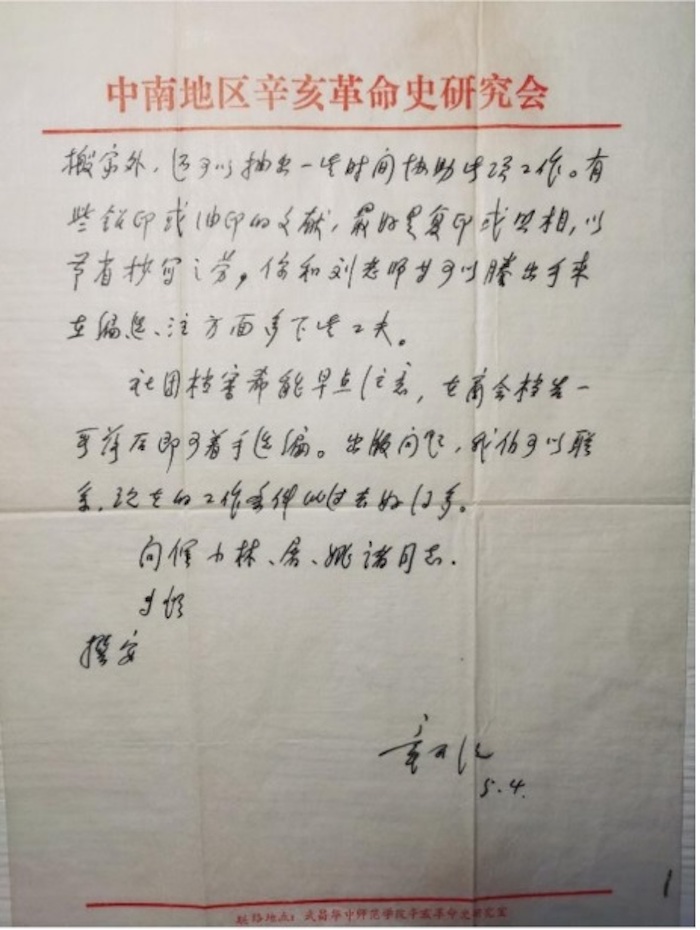 中南地区辛亥革命史研究会
搬家外，还可以抽出一些时间协助此项工作。有
些铅印或油印的文献，最好是复印或照相，以
节省抄写之劳，你和刘老师甘可以腾出手来
在编选、注方面多下些工夫。
社团档案希能早点注意，在商会档告一
段落后即可着手选编。出版问题，我仍可以联
系，现在的工作条件比过去好得多。
问候小林、屠、姚诸同志。
即颂
撰安
章开沅
5.4.
联络地点：武昌华中师范学院辛亥革命史研究室